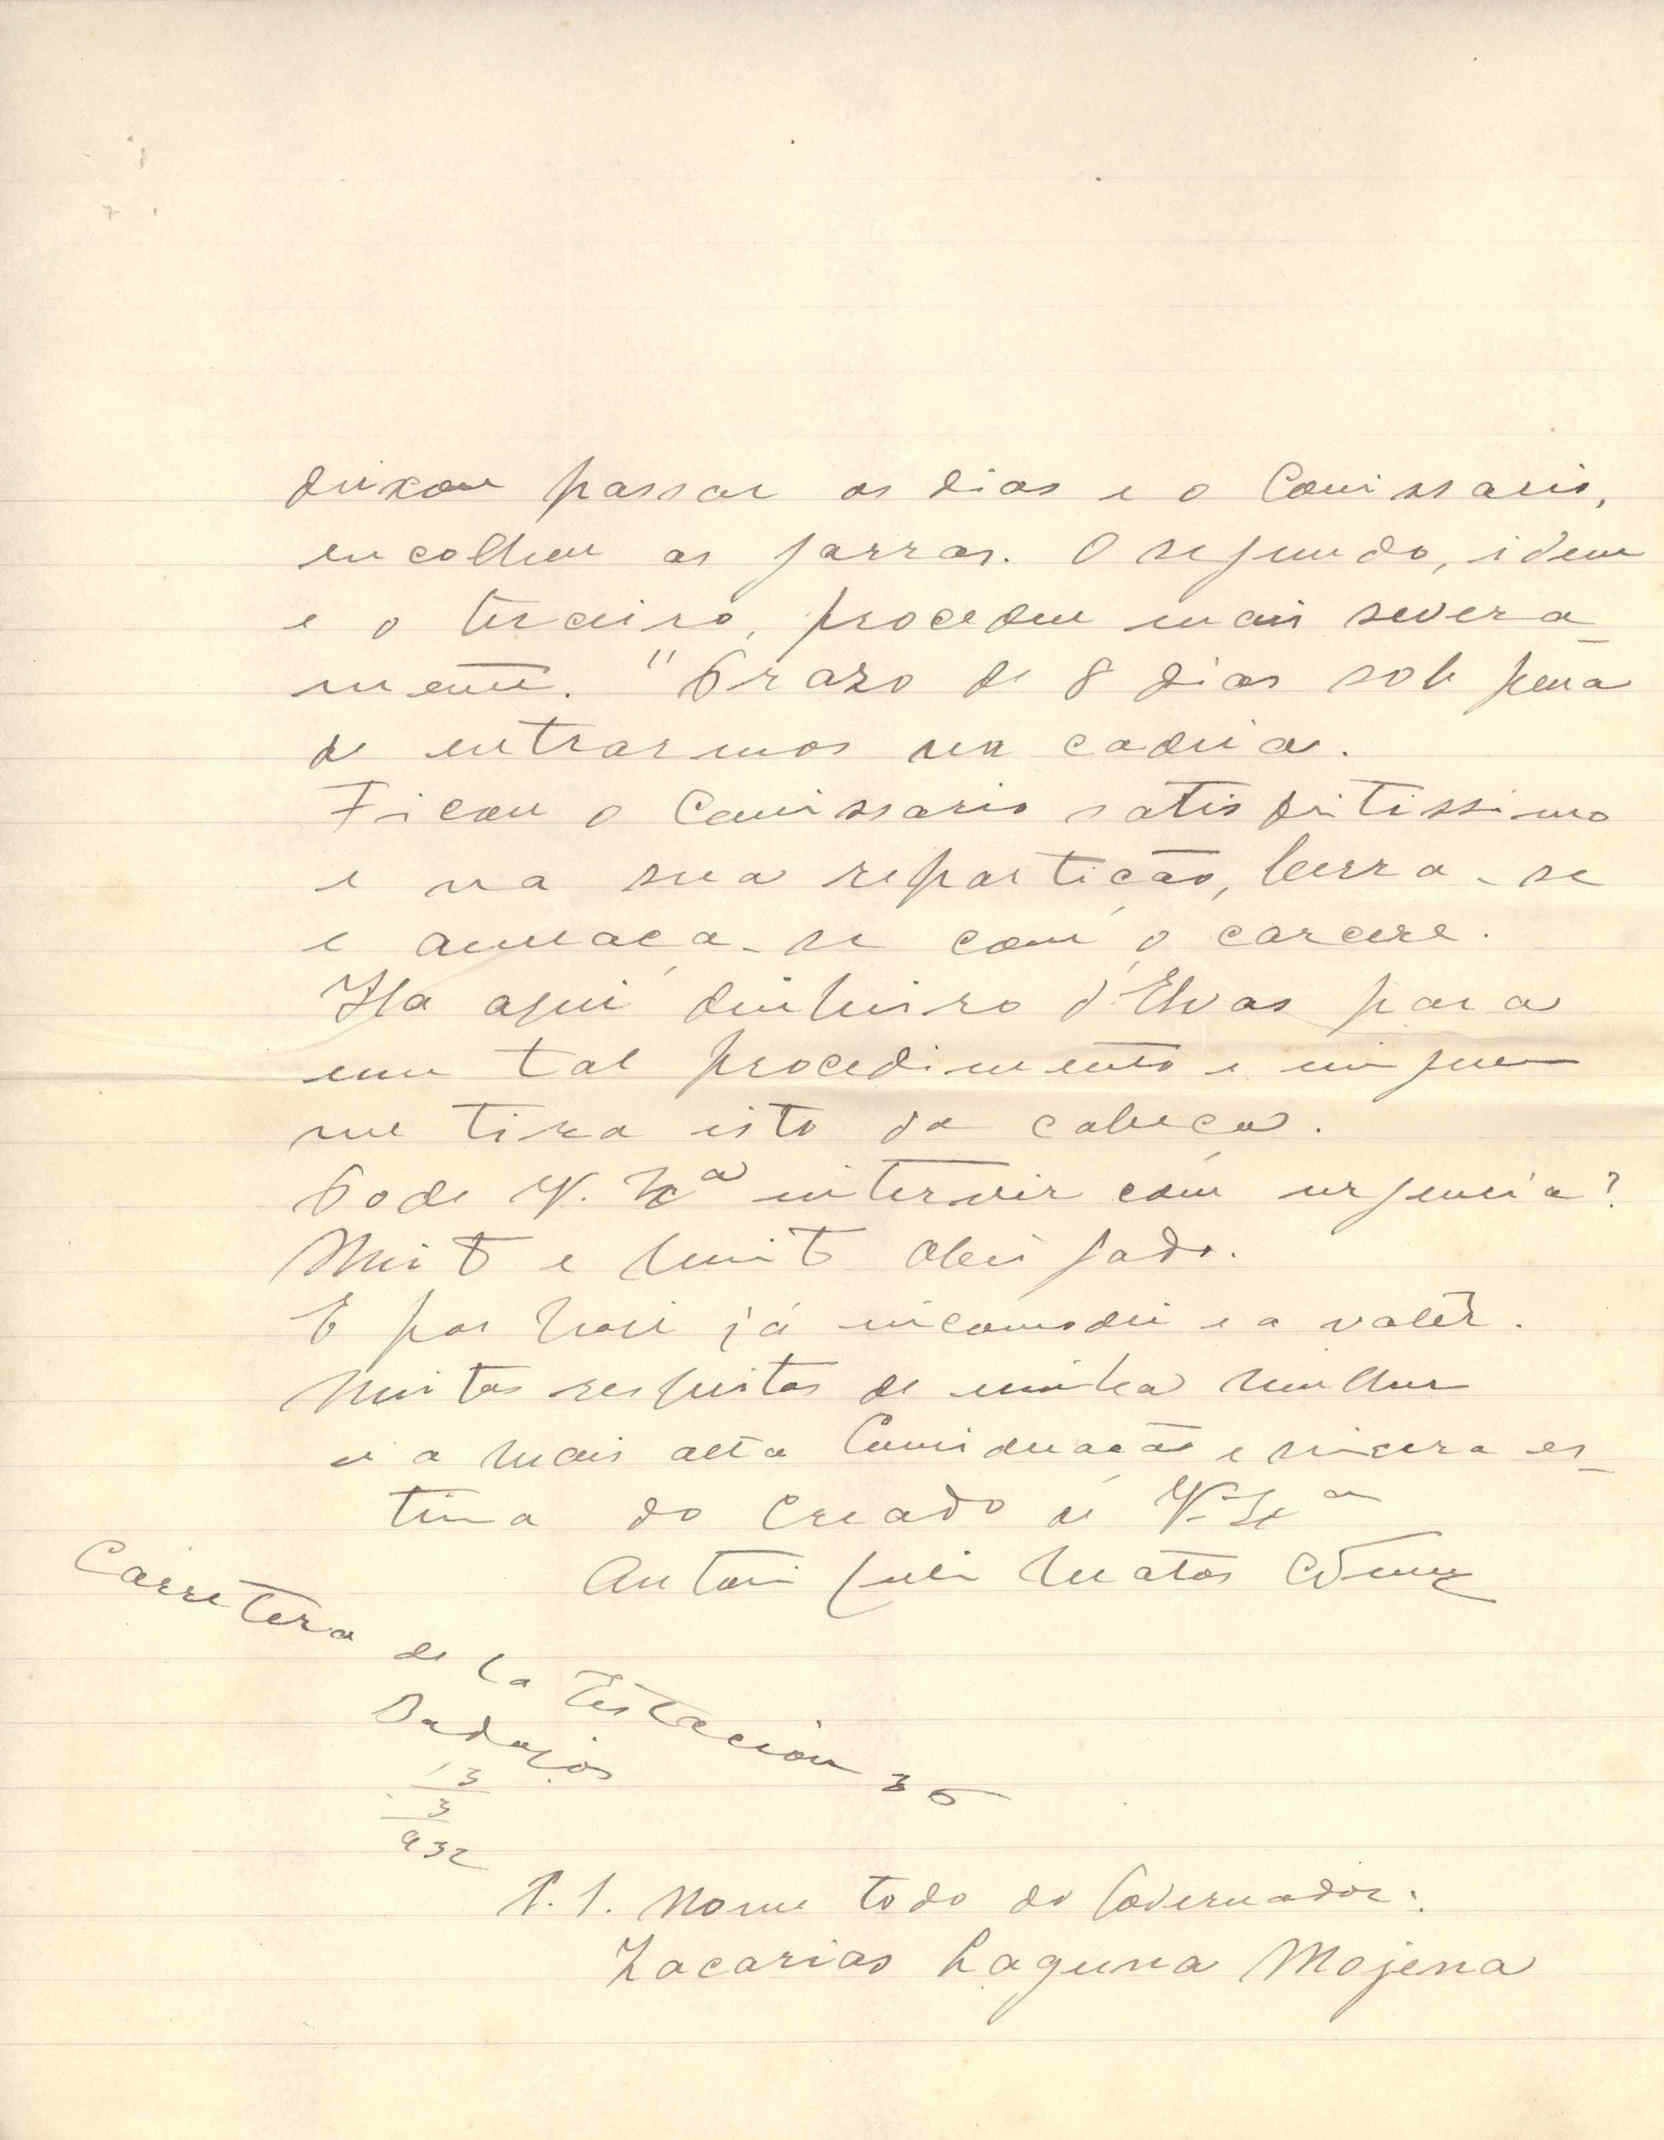 deixou passar os dias e o Comissario,
encolheu as garras. O segundo, idem
e o terceiro, procedeu mais severa-
mente. "Prazo de 8 dias sob pena
de entrarmos na cadeia.
Ficou o Comissario satisfeitissimo
e na sua repartição, berra-se
e ameaça-se com o carcere.
Ha aqui dinheiro d'Elvas para
um tal procedimento e ninguem
me tira isto da cabeça.
Pode V. Exª intervir com urgencia?
Muitº e muitº obrigado.
E por hoje já incomodei e a valêr.
Muitos respeitos de minha mulher
e a mais alta consideração e sincera es-
tima do creado de V. Exª
Antonio Luis Matos Gomes
Carretera de la Estacion 36
Badajós
13
3
932
P.S. Nome todo do Governador:
Zacarias Laguna Mojena